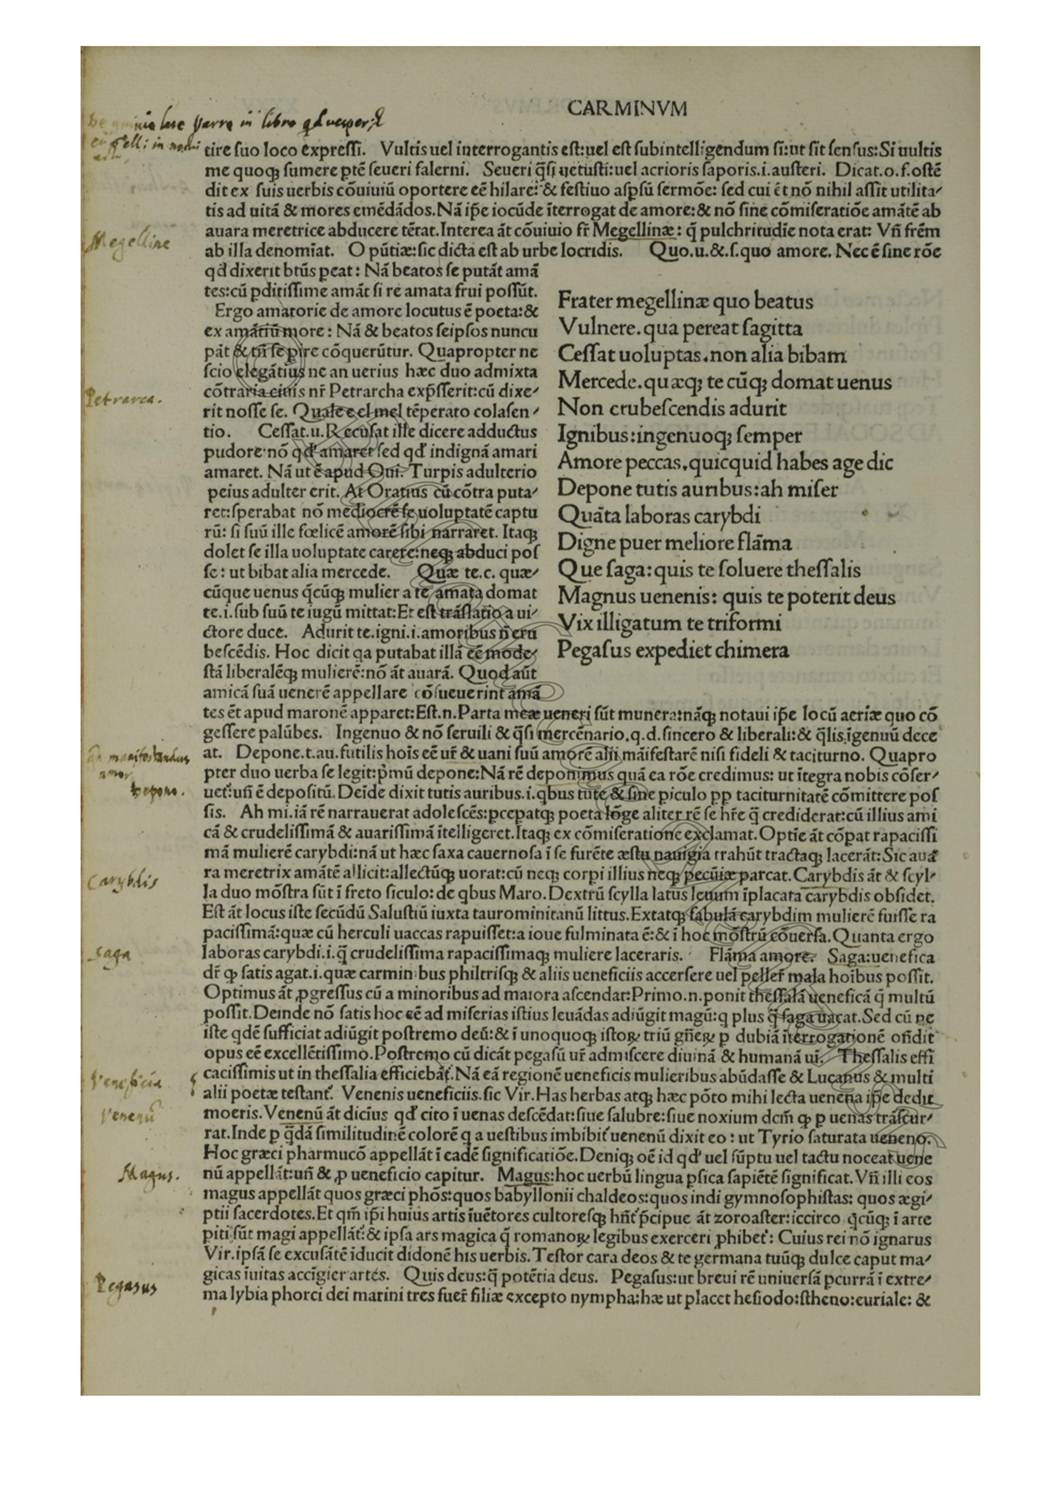 CARMINVM
in libro
tire suo loco expressi. Vultis uel interrogantis est:uel est subintelligendum si:ut sit sensus:Si uultis
me quoqꝫ sumere ptē seueri falerni. Seueri q̄si uetusti:uel acrioris saporis.i.austeri. Dicat.o.f.ostē
dit ex suis uerbis cōuiuiū oportere eē hilare: & festiuo aspsū sermōe: sed cui ēt nō nihil assit utilita⸗
tis ad uitā & mores emēdādos.Nā ip̄e iocūde īterrogat de amore:& nō sine cōmiseratiōe amātē ab
auara meretrice abducere tētat.Interea āt cōuiuio fr̄ Megellinæ: q̄ pulchritudīe nota erat: Vn̄ frēm
ab illa denomīat. O pūtiæ:sic dicta est ab urbe locridis. Quo.u.&.s.quo amore. Nec ē sine rōe
qd dixerit btūs peat: Nā beatos se putāt amā
tes:cū pditissime amāt si re amata frui possūt.
Ergo amatorie de amore locutus ē poeta:&
ex amātiū more : Nā & beatos seipsos nuncu
pāt & tn̄ se pire cōquerūtur. Quapropter ne
scio elegātius ne an uerius hæc duo admixta
cōtraria ciuis nr̄ Petrarcha exp̄sserit:cū dixe⸗
rit nosse se. Quale e el mel tēperato colasen⸗
tio. Cessat.u.Recusat ille dicere adductus
pudore nō qd' amaret sed qd' indignā amari
amaret. Nā ut ē apud Oui. Turpis adulterio
peius adulter erit. At Oratius cū cōtra puta⸗
ret:sperabat nō mediocrē se uoluptatē captu
rū: si suū ille fœlicē amorē sibi narraret. Itaqꝫ
dolet se illa uoluptate carere:neqꝫ abduci pos
se : ut bibat alia mercede. Quæ te.c. quæ⸗
cūque uenus q̄cūqꝫ mulier a te amata domat
te.i.sub suū te iugū mittat:Et est trāslatio a ui⸗
ctore duce. Adurit te.igni.i.amoribus n̄ eru
bescēdis. Hoc dicit qa putabat illā eē mode⸗
stā liberalēqꝫ mulierē:nō āt auarā. Quod aūt
amicā suā uenerē appellare cōsueuerint amā
Frater megellinæ quo beatus
Vulnere.qua pereat sagitta
Cessat uoluptas.non alia bibam
Mercede.quæqꝫ te cūqꝫ domat uenus
Non erubescendis adurit
Ignibus:ingenuoqꝫ semper
Amore peccas.quicquid habes age dic
Depone tutis auribus:ah miser
Quāta laboras carybdi
Digne puer meliore flāma
Que saga:quis te soluere thessalis
Magnus uenenis: quis te poterit deus
Vix illigatum te triformi
Pegasus expediet chimera
tes ēt apud maronē apparet:Est.n.Parta meæ ueneri sūt munera:nāqꝫ notaui ip̄e locū aeriæ quo cō
gessere palūbes. Ingenuo & nō seruili & q̄si mercēnario.q.d.sincero & liberali:& q̄lis īgenuū dece
at. Depone.t.au.futilis hoīs eē ur̄ & uani suū amorē alii māifestare nisi fideli & taciturno. Quapro
pter duo uerba se legit:p̄mū depone:Nā rē deponimus quā ea rōe credimus: ut ītegra nobis cōser⸗
uet':un̄ ē depositū. Deīde dixit tutis auribus.i.qbus tute & sine piculo pp taciturnitatē cōmittere pos
sis. Ah mi.iā rē narrauerat adolescēs:pcepatqꝫ poeta lōge aliter rē se hr̄e q̄ crediderat:cū illius ami
cā & crudelissimā & auarissimā ītelligeret.Itaqꝫ ex cōmiseratione exclamat.Optīe āt cōpat rapacissi
mā mulierē carybdi:nā ut hæc saxa cauernosa ī se furēte æstu nauigia trahūt tractaqꝫ lacerāt:Sic aua
ra meretrix amātē allicit:allectūqꝫ uorat:cū neqꝫ corpi illius neqꝫ pecūiæ parcat.Carybdis āt & scyl⸗
la duo mōstra sūt ī freto siculo: de qbus Maro. Dextrū scylla latus leuum īplacata carybdis obsidet.
Est āt locus iste secūdū Salustiū iuxta taurominitanū littus.Extatqꝫ fabulā carybdim mulierē fuisse ra
pacissimā:quæ cū herculi uaccas rapuisset:a ioue fulminata ē:& ī hoc mōstrū cōuersa.Quanta ergo
laboras carybdi.i.q̄ crudelissima rapacissimaqꝫ muliere laceraris. Flāma amore. Saga:uenefica
dr̄ ꝙ satis agat.i.quæ carminibus philtrisqꝫ & aliis ueneficiis accersere uel pellere mala hoibus possit.
Optimus āt ꝓgressus cū a minoribus ad maiora ascendat:Primo.n.ponit thessalā ueneficā q̄ multū
possit. Deinde nō satis hoc eē ad miserias istius leuādas adiūgit magū:q plus q̄ saga ualeat. Sed cū ne
iste qdē sufficiat adiūgit postremo deū:& ī unoquoqꝫ istoꝝ triū gn̄eꝝ p dubiā īterrogationē on̄dit
opus eē excellētissimo. Postremo cū dicāt pegasū ur̄ admiscere diuinā & humanā uī. Thessalis effi
cacissimis ut in thessalia efficiebāt. Nā eā regionē ueneficis mulieribus abūdasse & Lucanus & multi
alii poetæ testant'. Venenis ueneficiis.sic Vir.Has herbas atqꝫ hæc pōto mihi lecta uenena ip̄e dedit
moeris. Venenū āt dicius qd' cito ī uenas descēdat:siue salubre:siue noxium dcm̄ ꝙ p uenas trāscur⸗
rat.Inde p q̄dā similitudinē colorē q a uestibus imbibit' uenenū dixit eo : ut Tyrio saturata ueneno.
Hoc græci pharmucō appellāt ī eadē significatiōe. Deniqꝫ oē id qd' uel sūptu uel tactu noceat uene
nū appellāt:un̄ & ꝓ ueneficio capitur. Magus:hoc uerbū lingua psica sapiētē significat. Vn̄ illi eos
magus appellāt quos græci phōs:quos babyllonii chaldeos:quos indi gymnosophistas: quos ægi⸗
ptii sacerdotes.Et qm̄ ip̄i huius artis īuētores cultoresqꝫ hn̄t' p̄cipue āt zoroaster:iccirco q̄cūqꝫ ī arte
piti sūt magi appellāt':& ipsa ars magica q̄ romanoꝝ legibus exerceri ꝓhibet': Cuius rei nō ignarus
Vir.ipsā se excusātē iducit didonē his uerbis.Testor cara deos & te germana tuūqꝫ dulce caput ma⸗
gicas iuitas accīgier artes. Quis deus:q̄ potētia deus. Pegasus:ut breui rē uniuersā pcurrā ī extre⸗
ma lybia phorci dei marini tres fuer̄ filiæ excepto nympha:hæ ut placet hesiodo:stheno:euriale: &
Megelline
Petrarca.
amor
Depone.
Carybdis
Saga
Veneficia
Venenū
Magus.
Pegasus